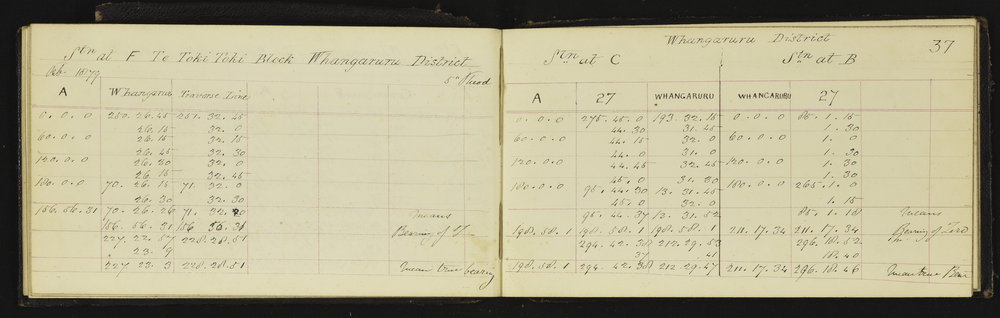 Stn at F Te Toki Toki Block Whangaruru District
Feb 1879
5" Theod
A Whangaruru Traverse Line
0.0.0 250.26.45 251.32.45
26.15 32.0
60.0.0 26.15 32.0
26.45 32.30
120.0.0 26.30 32.0
26.15 32.45
180.0.0 70.26.15 71.32.0
26.30 32.30
156.56.31 70.26.26 71.32.20 means
156.56.31 156.56.31 Bearing of
227.22.57 228.28.51
23.9
227.23.3 228.28.51 Mean true bearing
Whangaruru District 37
Stn at C Stn at B
A 27 WHANGARURU WHANGARURU 27
0.0.0 275.45.0 193.32.15 0.0.0 85.1.15
44.30 31.45 1.30
60.0.0 44.15 32.0 60.0.0 1.0
44.0 31.0 1.30
120.0.0 44.45 32.45 120.0.0 1.30
45.0 31.30 1.30
180.0.0 95.44.30 13.31.45 180.0.0 265.1.0
45.0 32.0 1.15
95.44.37 13.31.52 85.1.18 means
198.58.1 198.58.1 198.58.1 211.17.34 211.17.34 Bearing of Zero
294.42.38 212.29.53 296.18.52
37 41 18.40
198.58.1 294.42.38 212.29.47 211.17.34 296.18.46 Mean true Bear